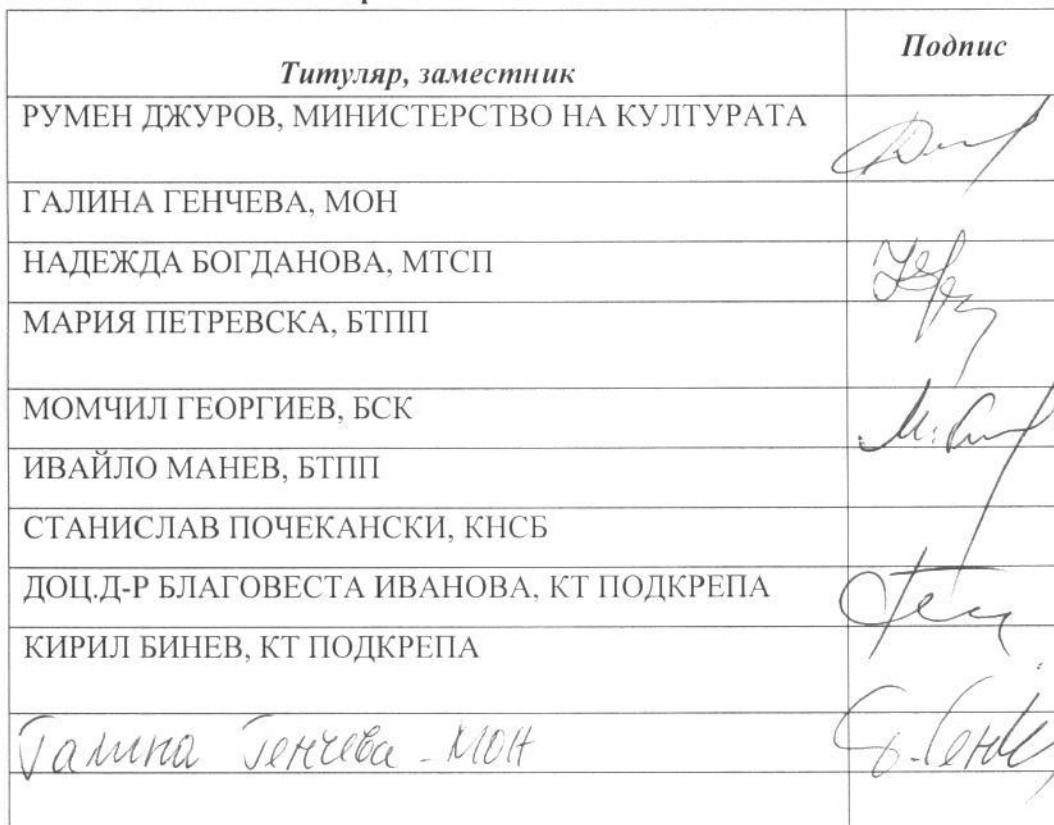 Титуляр, заместник
Подпис
РУМЕН ДЖУРОВ, МИНИСТЕРСТВО НА КУЛТУРАТА
ГАЛИНА ГЕНЧЕВА, МОН
НАДЕЖДА БОГДАНОВА, МТСП
МАРИЯ ПЕТРЕВСКА, БТПП
МОМЧИЛ ГЕОРГИЕВ, БСК
ИВАЙЛО МАНЕВ, БТПП
СТАНИСЛАВ ПОЧЕКАНСКИ, КНСБ
ДОЦ.Д-Р БЛАГОВЕСТА ИВАНОВА, КТ ПОДКРЕПА
КИРИЛ БИНЕВ, КТ ПОДКРЕПА
Галина Генчева - МОН